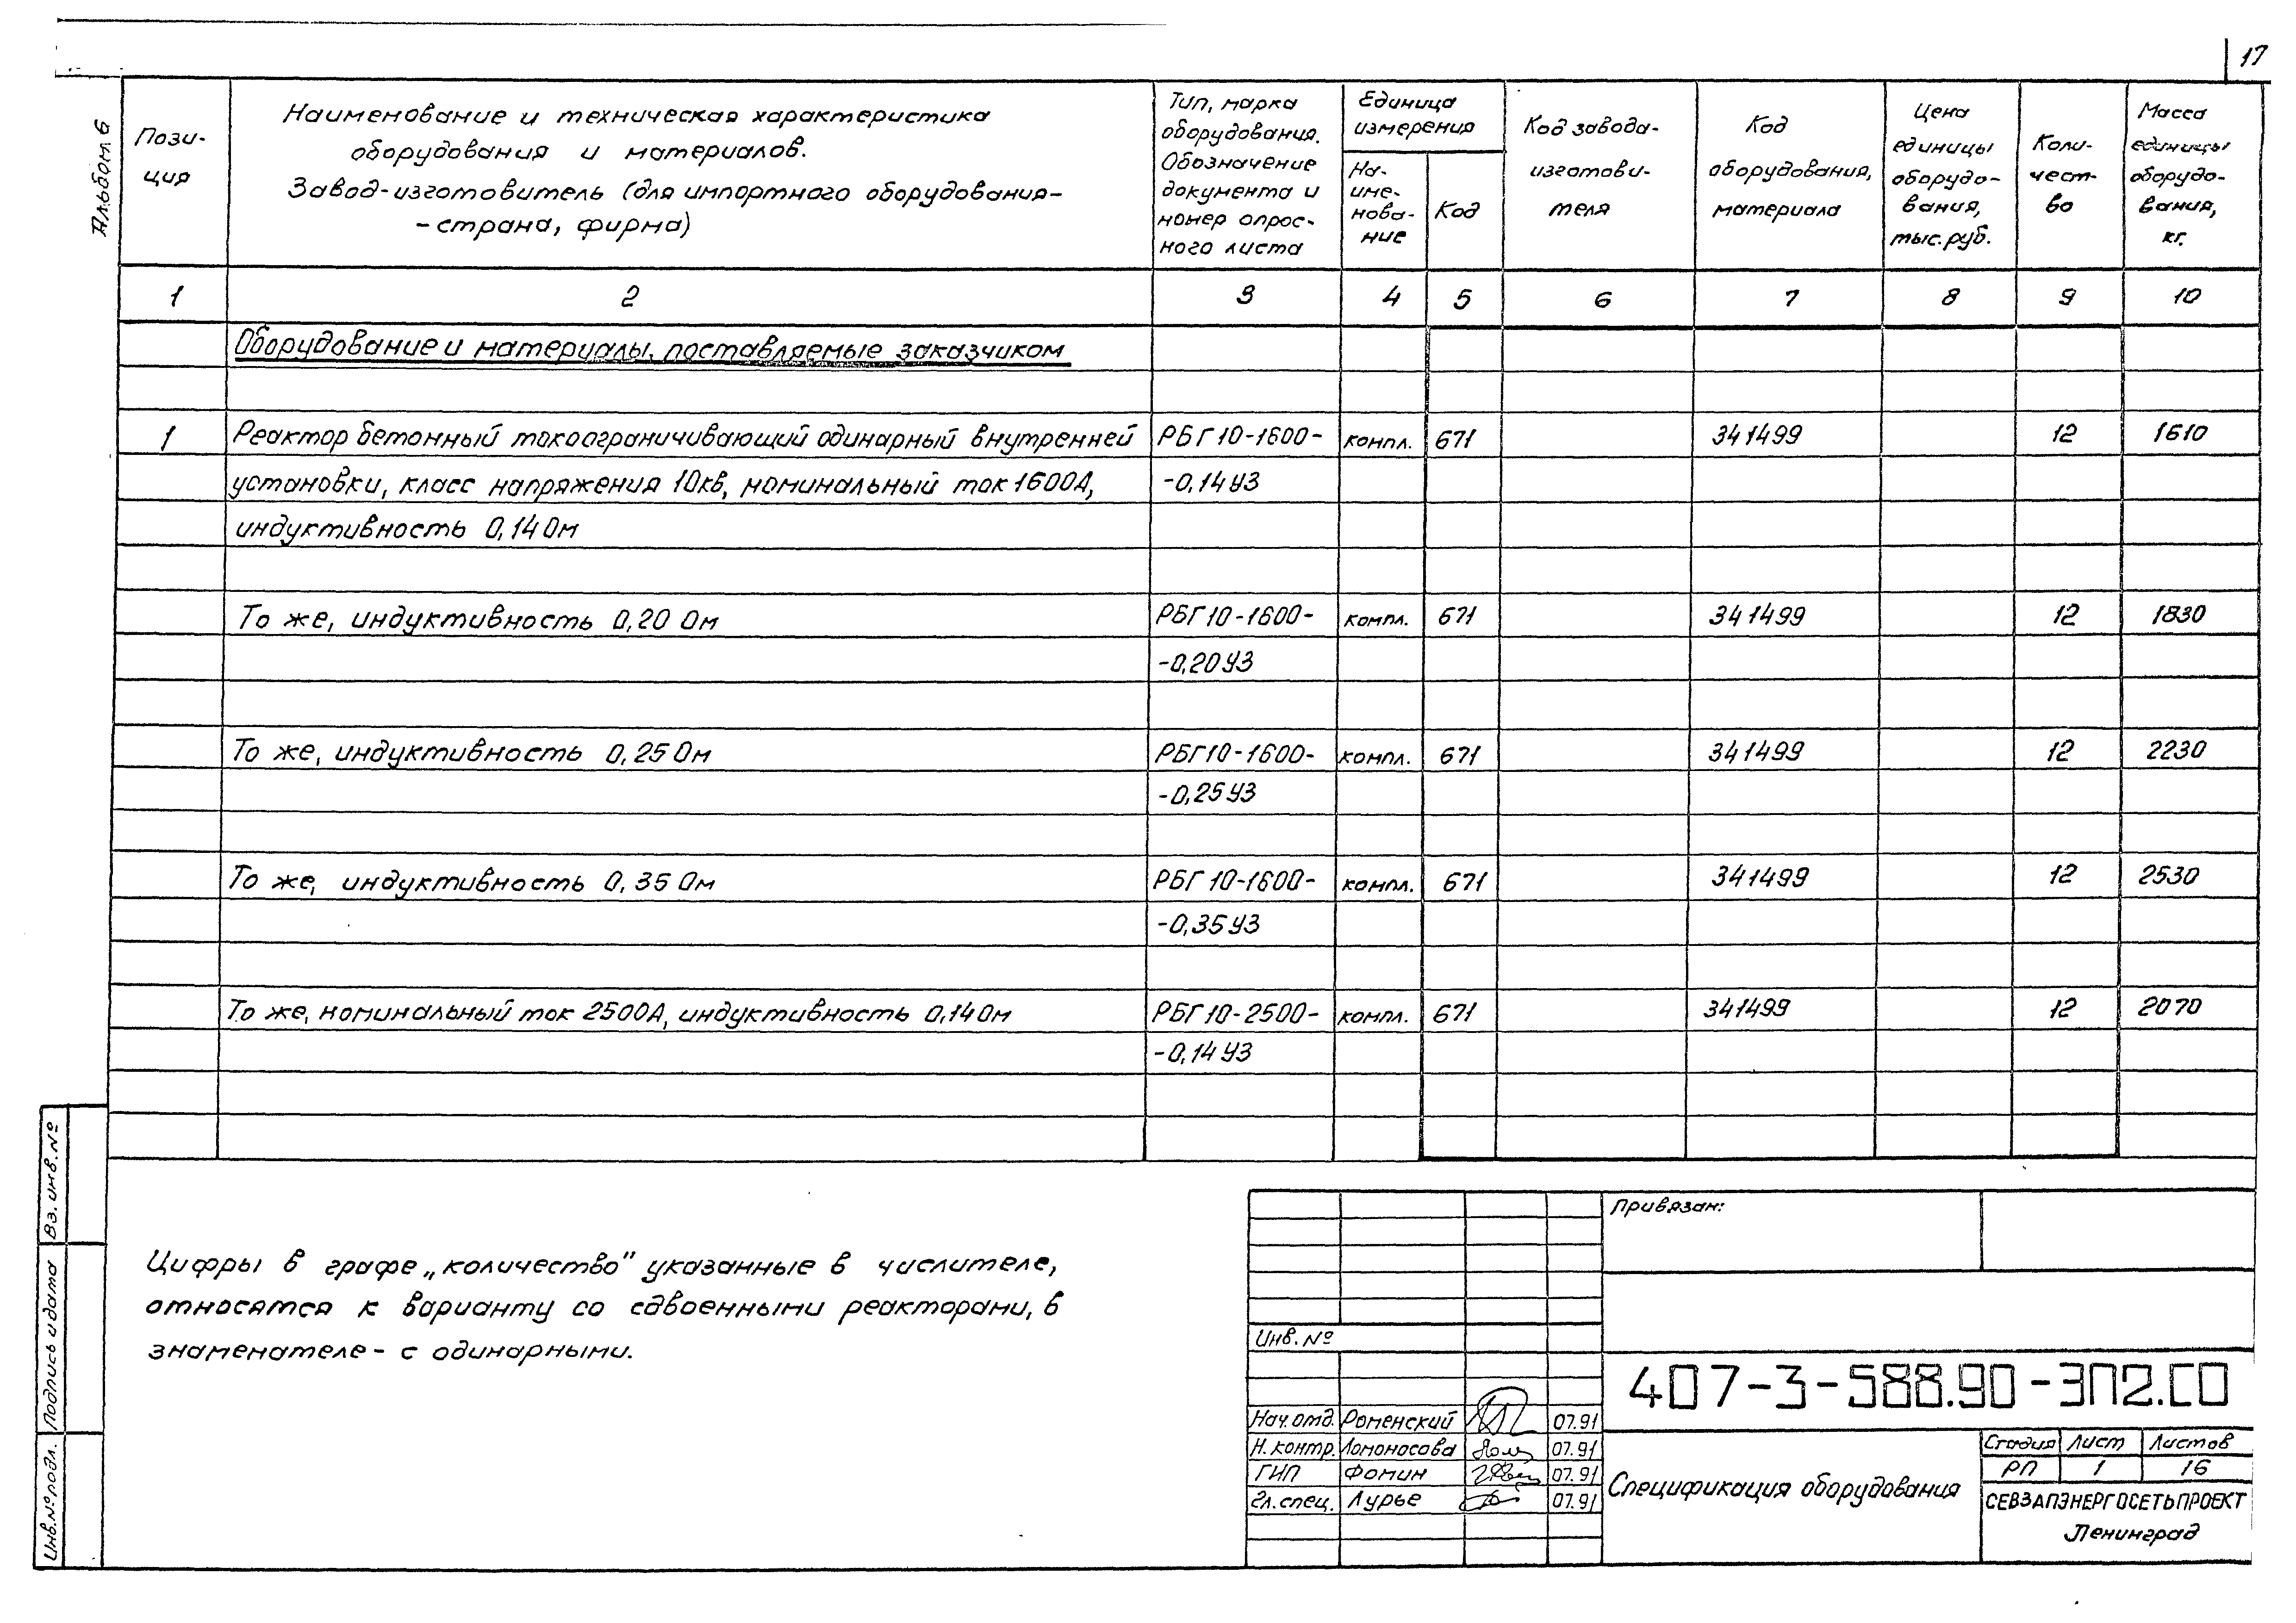 17
Альбом 6
Пози-
ция
Наименование и техническая характеристика
оборудования и материалов.
Завод-изготовитель (для импортного оборудования-
-страна, фирма)
Тип, марка
оборудования.
Обозначение
документа и
номер опрос-
ного листа
Единица
измерения
На-
име-
нова-
ние
Код
Код завода-
изготови-
теля
Код
оборудования,
материала
Цена
единицы
оборудо-
вания,
тыс. руб.
Коли-
чест-
во
Масса
единицы
оборудо-
вания,
кг.
1 2 3 4 5 6 7 8 9 10
Оборудование и материалы, поставляемые заказчиком
1 Реактор бетонный токоограничивающий одинарный внутренней РБГ 10-1600- компл. 671 341499 12 1610
установки, класс напряжения 10кв, номинальный ток 1600А, -0,14 У3
индуктивность 0,14 Ом
То же, индуктивность 0,20 Ом РБГ 10-1600- компл. 671 341499 12 1830
-0,20 У3
То же, индуктивность 0,25 Ом РБГ 10-1600- компл. 671 341499 12 2230
-0,25 У3
То же, индуктивность 0,35 Ом РБГ 10-1600- компл. 671 341499 12 2530
-0,35 У3
То же, номинальный ток 2500А, индуктивность 0,14 Ом РБГ 10-2500- компл. 671 341499 12 2070
-0,14 У3
Цифры в графе „количество" указанные в числителе,
относятся к варианту со сдвоенными реакторани, в
знаменателе - с одинарными.
Вз. инв. №
Подпись и дата
Инв. № подл.
Привязан:
Инв. №
407-3-588.90-ЭП2.СО
Нач. отд. Роменский 07.91
Н. контр. Ломоносова 07.91
ГИП Фомин 07.91
Гл. спец. Лурье 07.91
Спецификация оборудования
Стадия Лист Листов
РП 1 16
СЕВЗАПЭНЕРГОСЕТЬПРОЕКТ
Ленинград